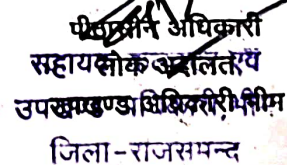 पीठासीन अधिकारी
सहायक लोक अदालत एवं
उपखण्ड अधिकारी, भीम
जिला-राजसमन्द